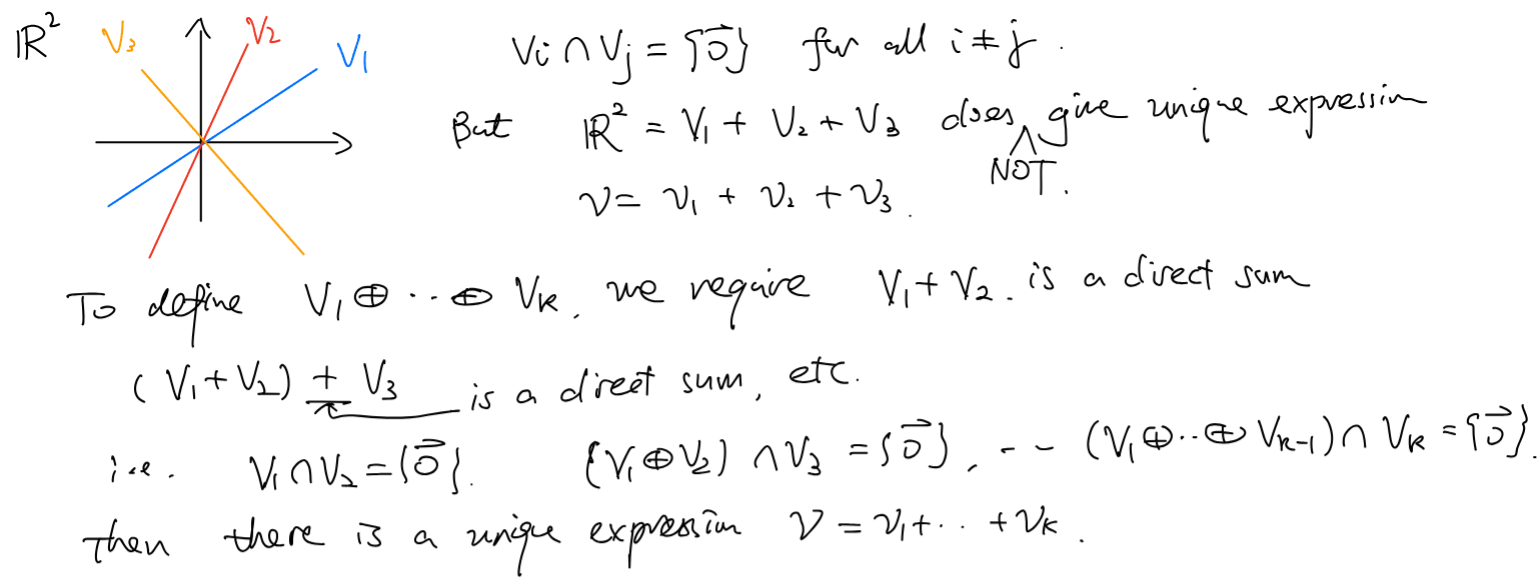 ℝ² V₃ V₂ V₁
Vi ∩ Vj = {0⃗} for all i ≠ j.
But ℝ² = V₁ + V₂ + V₃ does NOT give unique expression
v = v₁ + v₂ + v₃.
To define V₁ ⊕ ·· ⊕ Vk, we require V₁ + V₂ is a direct sum
(V₁ + V₂) + V₃ is a direct sum, etc.
i.e. V₁ ∩ V₂ = {0⃗}. (V₁ ⊕ V₂) ∩ V₃ = {0⃗}, -- (V₁ ⊕ ·· ⊕ Vk-1) ∩ Vk = {0⃗}.
then there is a unique expression v = v₁ + ·· + vk.